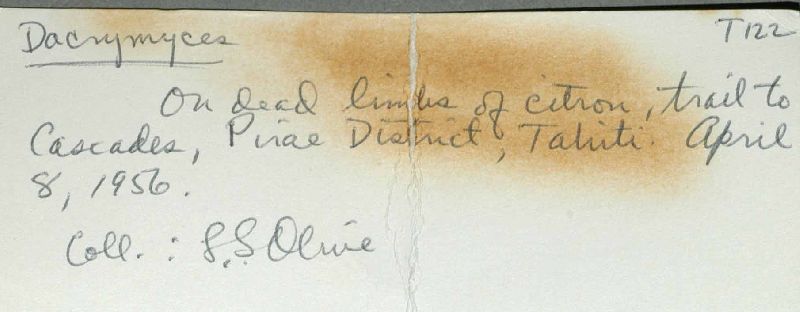 Dacrymyces
T122
On dead limbs of citron, trail to
Cascades, Pirae District, Tahiti. April
8, 1956.
Coll. : L.S. Olive